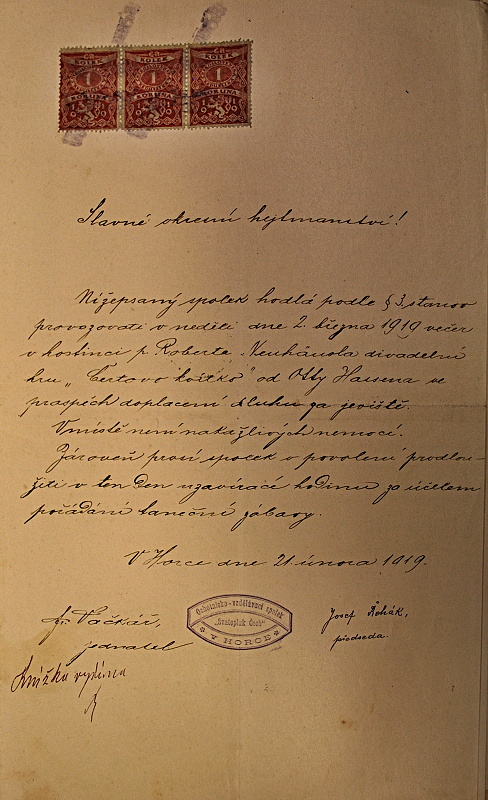 KOLEK KOLEK KOLEK
1 1 1
KORUNA KORUNA KORUNA
Slavné okresní hejtmanství!
Nížepsaný spolek hodlá podle § 3. stanov
provozovati v neděli dne 2. března 1919 večer
v hostinci p. Roberta Neuhäusla divadelní
hru „Čertovo kolitko" od Otty Hassena ve
prospěch doplacení dluhu za jeviště.
V místě není nakažlivých nemocí.
Zároveň prosí spolek o povolení prodlou-
žiti v ten den uzavírací hodinu za účelem
pořádání taneční zábavy.
V Horce dne 21. února 1919.
Ochotnicko-vzdělávací spolek
„Svatopluk Čech"
V HORCE
fr. Vačkář,
jednatel
Josef Řehák,
předseda.
Knížka vydána